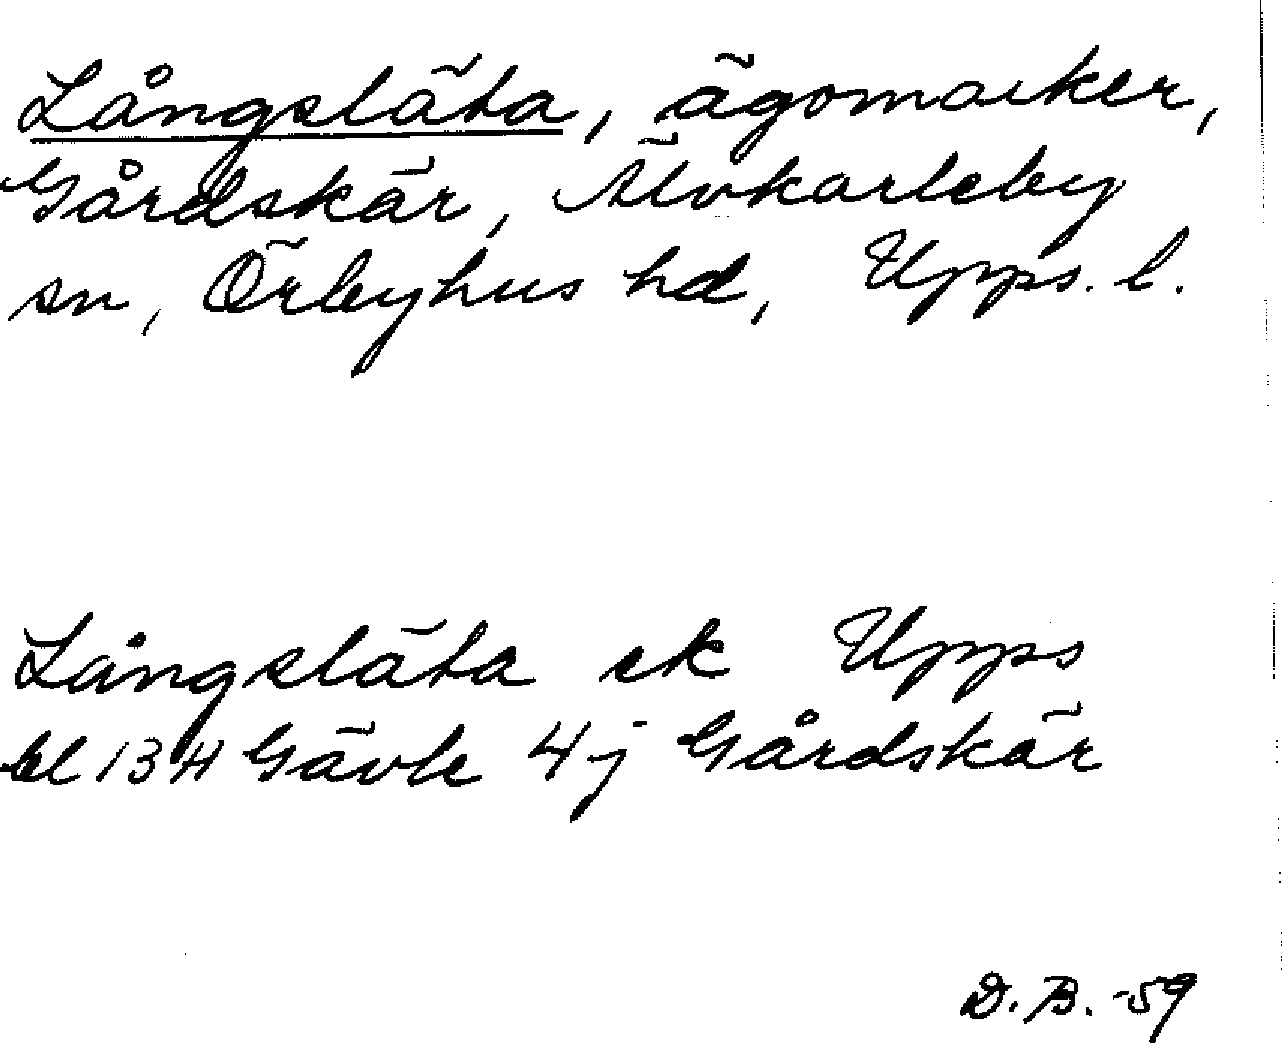 Långsläta, ägomarker,
Gårdskär, Älvkarleby
sn, Örbyhus hd, Upps. l.
Långsläta ek Upps
bl 13 H Gävle 4j Gårdskär
D. B. -59